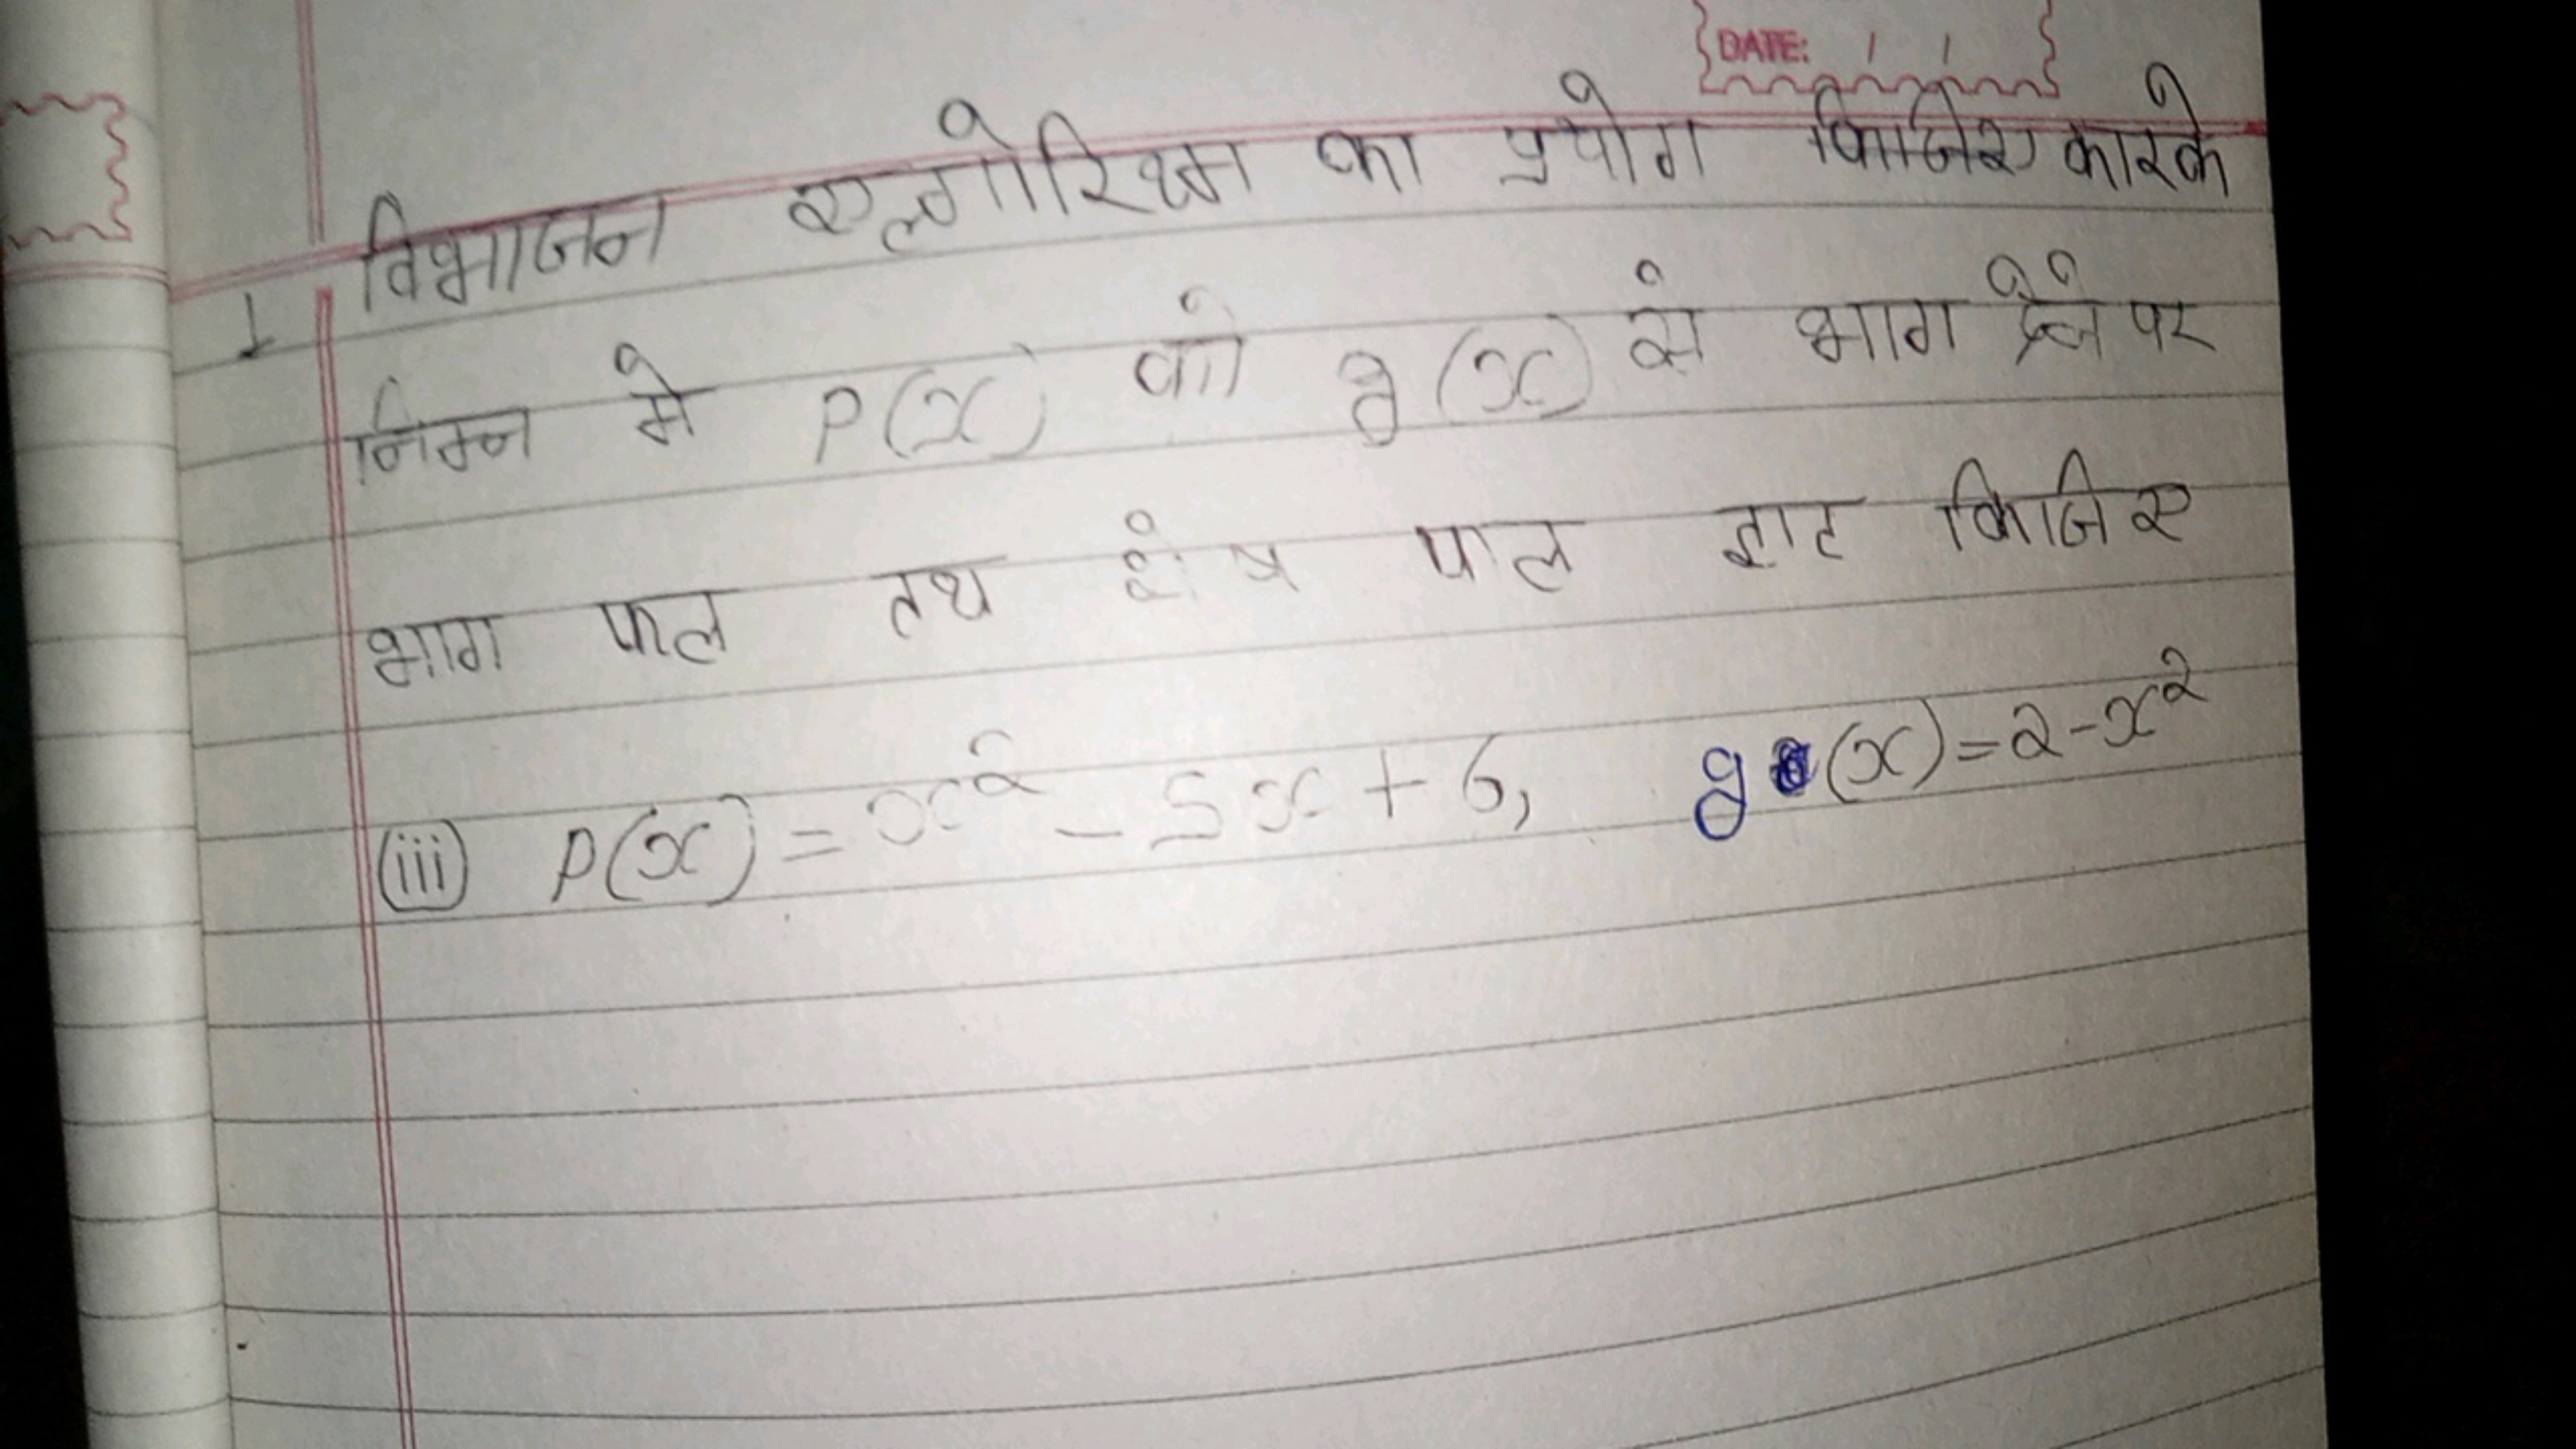 DATE: / /
1 विभाजन एल्गोरिथ्म का प्रयोग किजिए कारके
निम्न मे P(x) को g(x) से भाग देने पर
भाग फल तथ शेष फल ज्ञाट किजिए
(iii) P(x) = x² - 5x + 6, g(x) = 2 - x²